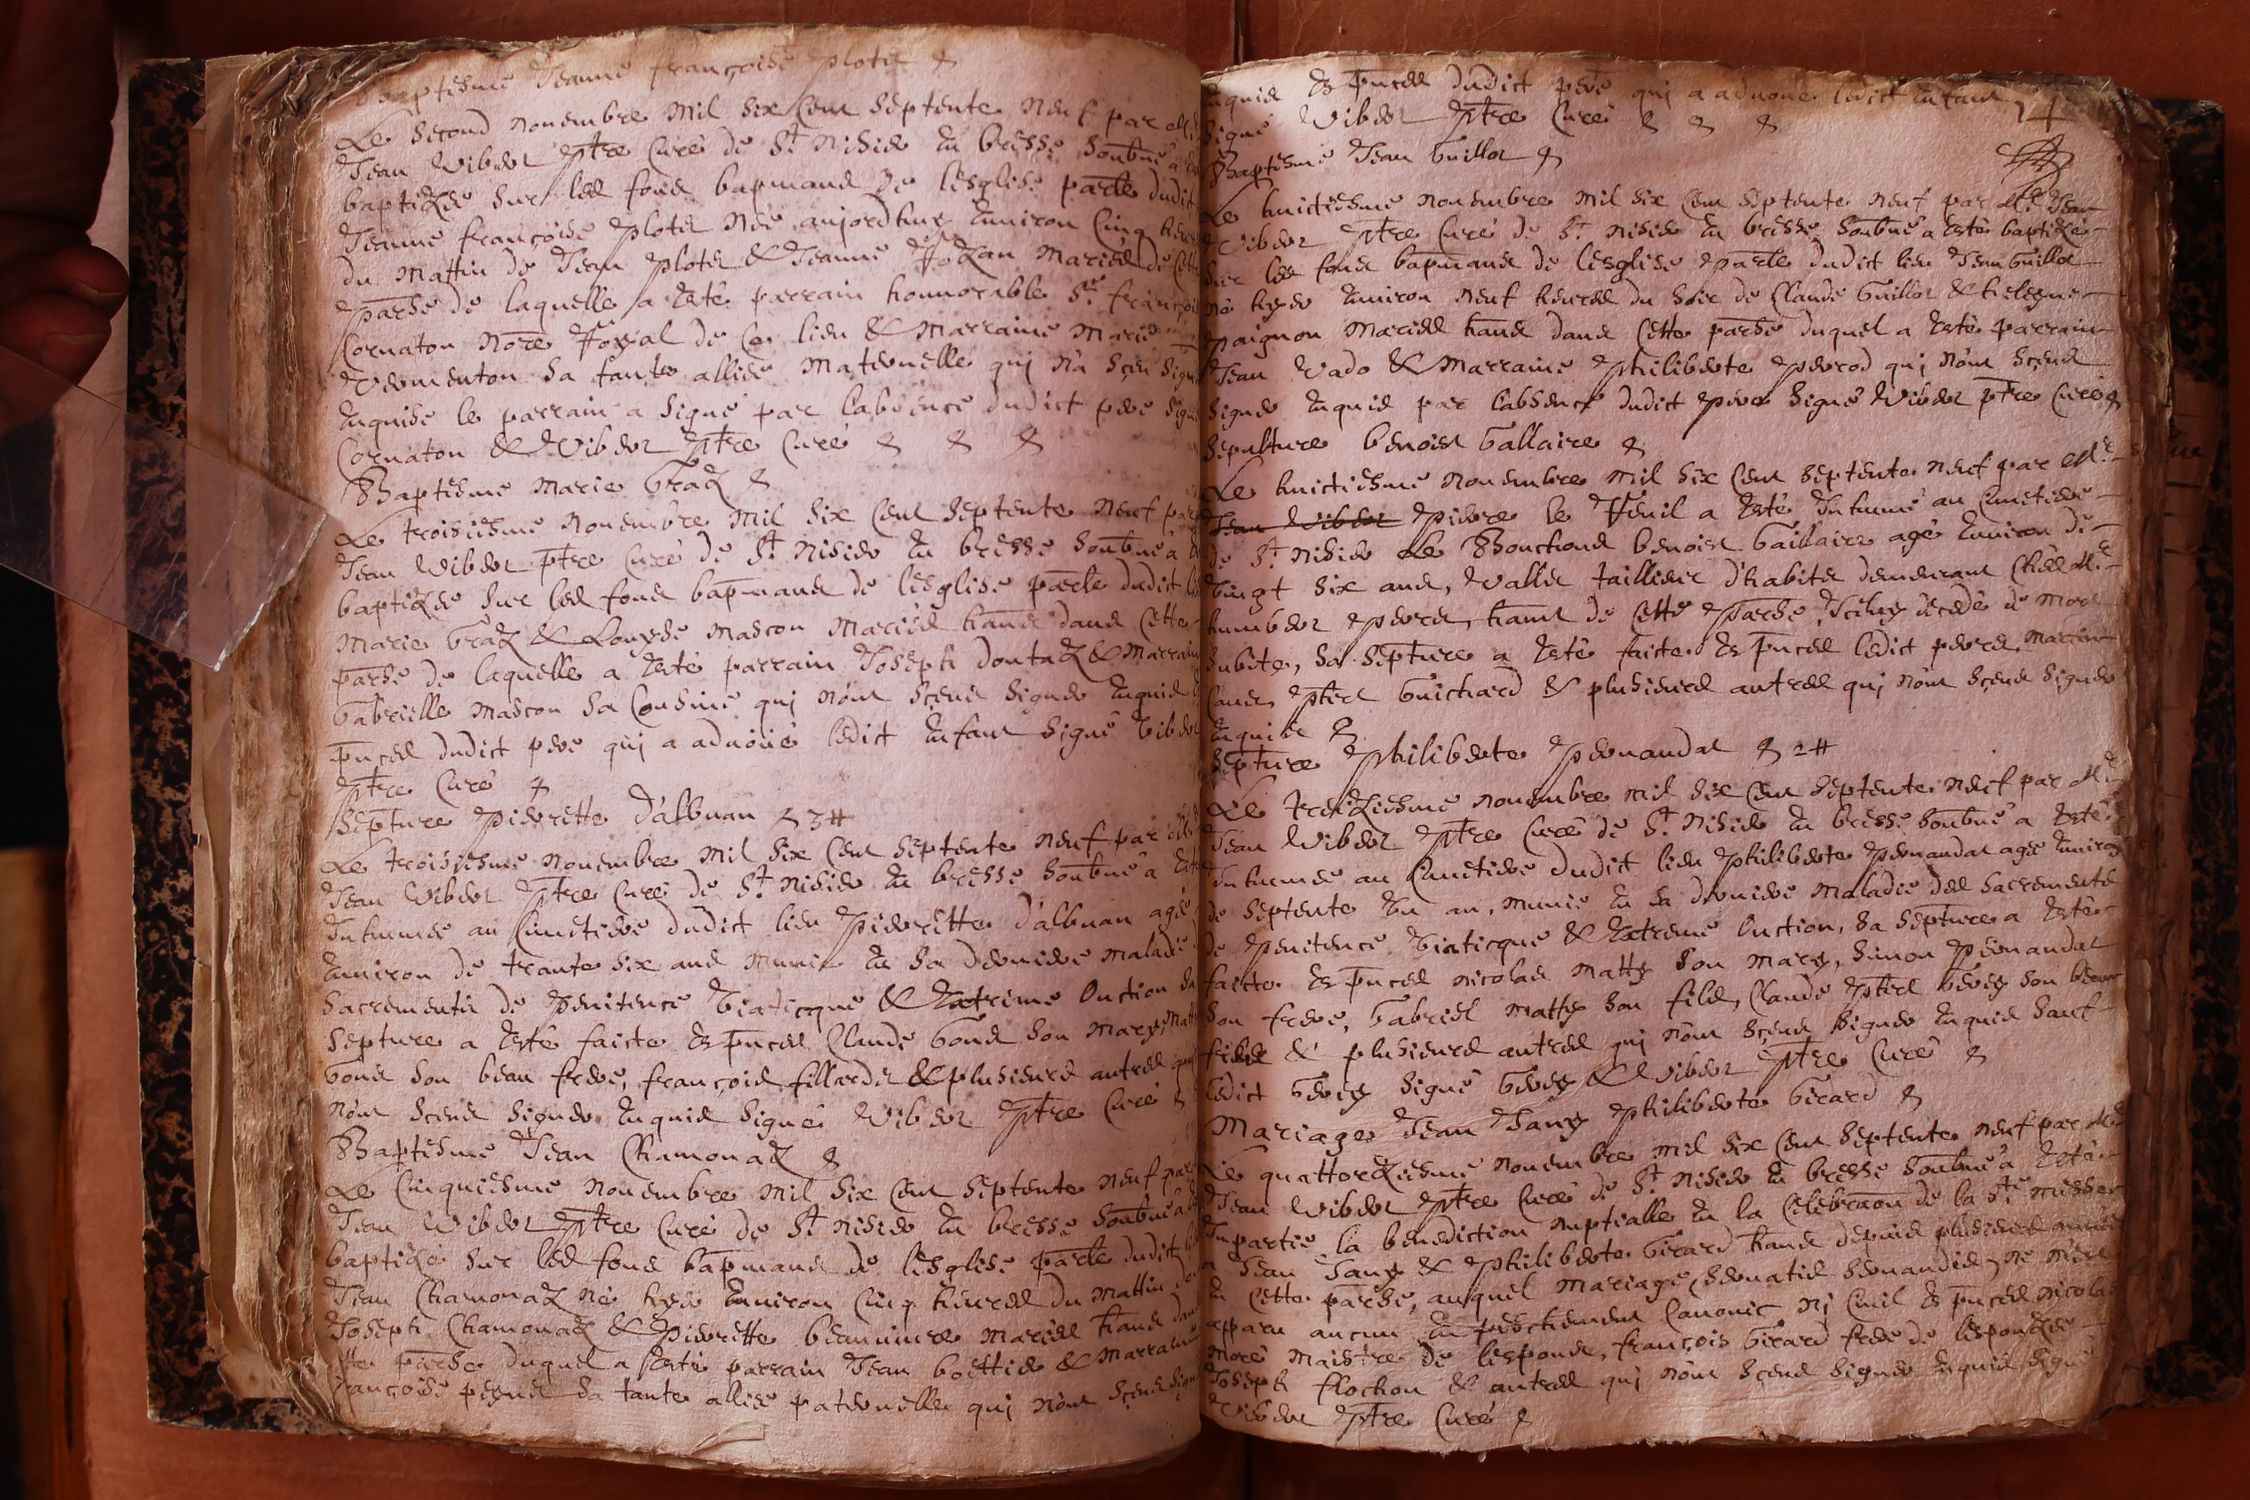 Baptesme Jeanne françoise Ploter
Le second novembre mil six cent septente neuf par Mre
Jean Vibert ptre Curé de St Nisier en bresse soubné a
baptizée sur les fons bapmaux de lesglise parle dudit
Jeanne françoise Ploter née aujordhuy environ cinq heures
du mattin de Jean Ploter & Jeanne Jozan mariés de cette
parse de laquelle a esté parrain honnorable Sr françois
Cornaton nore Royal de ce lieu & marraine Marie
Vermenton sa tante alliée maternelle qui na sceu signer
enquise le parrain a signé par labsence dudict pere signé
Cornaton & Vibert ptre Curé
Baptesme Marie Graz
Le troisiesme novembre mil six cent septente neuf par
Jean Vibert ptre Curé de St Nisier en bresse soubné a
baptizée sur les fons bapmaux de lesglise parle dudit
Marie Graz & Louyse Mascon mariés hans dans cette
parse de laquelle a esté parrain Joseph Doutaz & marraine
Gabrielle Mascon sa cousine qui nont sceus signer enquis
pnces dudict pere qui a advoué ledict enfant signé Vibert
ptre Curé
Septure Pierrette Dalbuan 3#
Le troisiesme novembre mil six cent septente neuf par
Jean Vibert ptre Curé de St Nisier en bresse soubné a esté
Inhumée au cimetiere dudict lieu Pierrette Dalbuan agée
environ de trante six ans munie en sa derniere maladie
sacrements de penitence Viaticque & extreme onction sa
septure a esté faicte es pnces Claude Gond son mary,
Gond son beau frere, françois fillardet & plusieurs autres qui
nont sceus signer enquis signé Vibert ptre Curé
Baptesme Jean Chamonaz
Le cinquiesme novembre mil six cent septente neuf par
Jean Vibert ptre Curé de St Nisier en bresse soubné a
baptizé sur les fons bapmaux de lesglise parle dudit
Jean Chamonaz né hyer environ cinq heures du mattin de
Joseph Chamonaz & Pierrette beauvivre mariés hans dans
parse duquel a esté parrain Jean boettier & marraine
françoise sa tante alliée paternelle qui nont sceus signer
enquis es pnces dudict pere qui a advoué ledict enfant
signé Vibert ptre Curé
Baptesme Jean Guillot
Le huictiesme novembre mil six cent septente neuf par Mre Jean
Vibert ptre Curé de St Nisier en bresse soubné a esté baptizé
sur les fons bapmaux de lesglise parle dudict lieu Jean Guillot
né hyer environ neuf heures du soir de Claude Guillot & heleyne
paignon mariés hans dans cette parse duquel a esté parrain
Jean Vado & marraine Philiberte Perrod qui nont sceus
signer enquis par labsence dudict pere signé Vibert ptre Curé
Sepulture benoist Gallaire
Le huictiesme novembre mil six cent septente neuf par Mre
Jean Vibert Pierre le Veuil a esté Inhumé au cimetiere
de St Nisier le Bouchoux benoist Gaillaire agé environ de
vingt six ans, vallet taillieur d'habits demeurant chez Mre
humbert Perret, hant de cette parse, Iceluy decedé de mort
subite, sa septure a esté faicte es pnces ledict perret, martin
Cane, ptres Guichard & plusieurs autres qui nont sceus signer
enquis
Septure Philiberte Pernandat 2#
Le treiziesme novembre mil six cent septente neuf par Mre
Jean Vibert ptre Curé de St Nisier en bresse soubné a esté
Inhumée au cimetiere dudict lieu Philiberte Pernandat agée environ
de septente un an, munie en sa derniere maladie des sacrements
de penitence Viaticque & extreme onction, sa septure a esté
faitte es pnces Nicolas Matty son mary, Simon Pernandat
son frere, Gabriel Matty son fils, Claude ptres Gevey son beau
frere & plusieurs autres qui nont sceus signer enquis sauf
ledict Gevey signé Gevey & Vibert ptre Curé
Mariage Jean Jany Philiberte Girard
Le quattorziesme novembre mil six cent septente neuf par Mre
Jean Vibert ptre Curé de St Nisier en bresse soubné a esté
Impartie la benediction nuptialle en la celebraon de la Ste messe
a Jean Jany & Philiberte Girard hans depuis plusieurs années
en cette parse, auquel mariage servatis servandis, ne nest
aparu aucun enpeschement canonic nj civil es pnces Nicolas
moré maistre de lespoux, françois Girard frere de lespouze
Joseph flochon & autres qui nont sceus signer enquis signé
Vibert ptre Curé